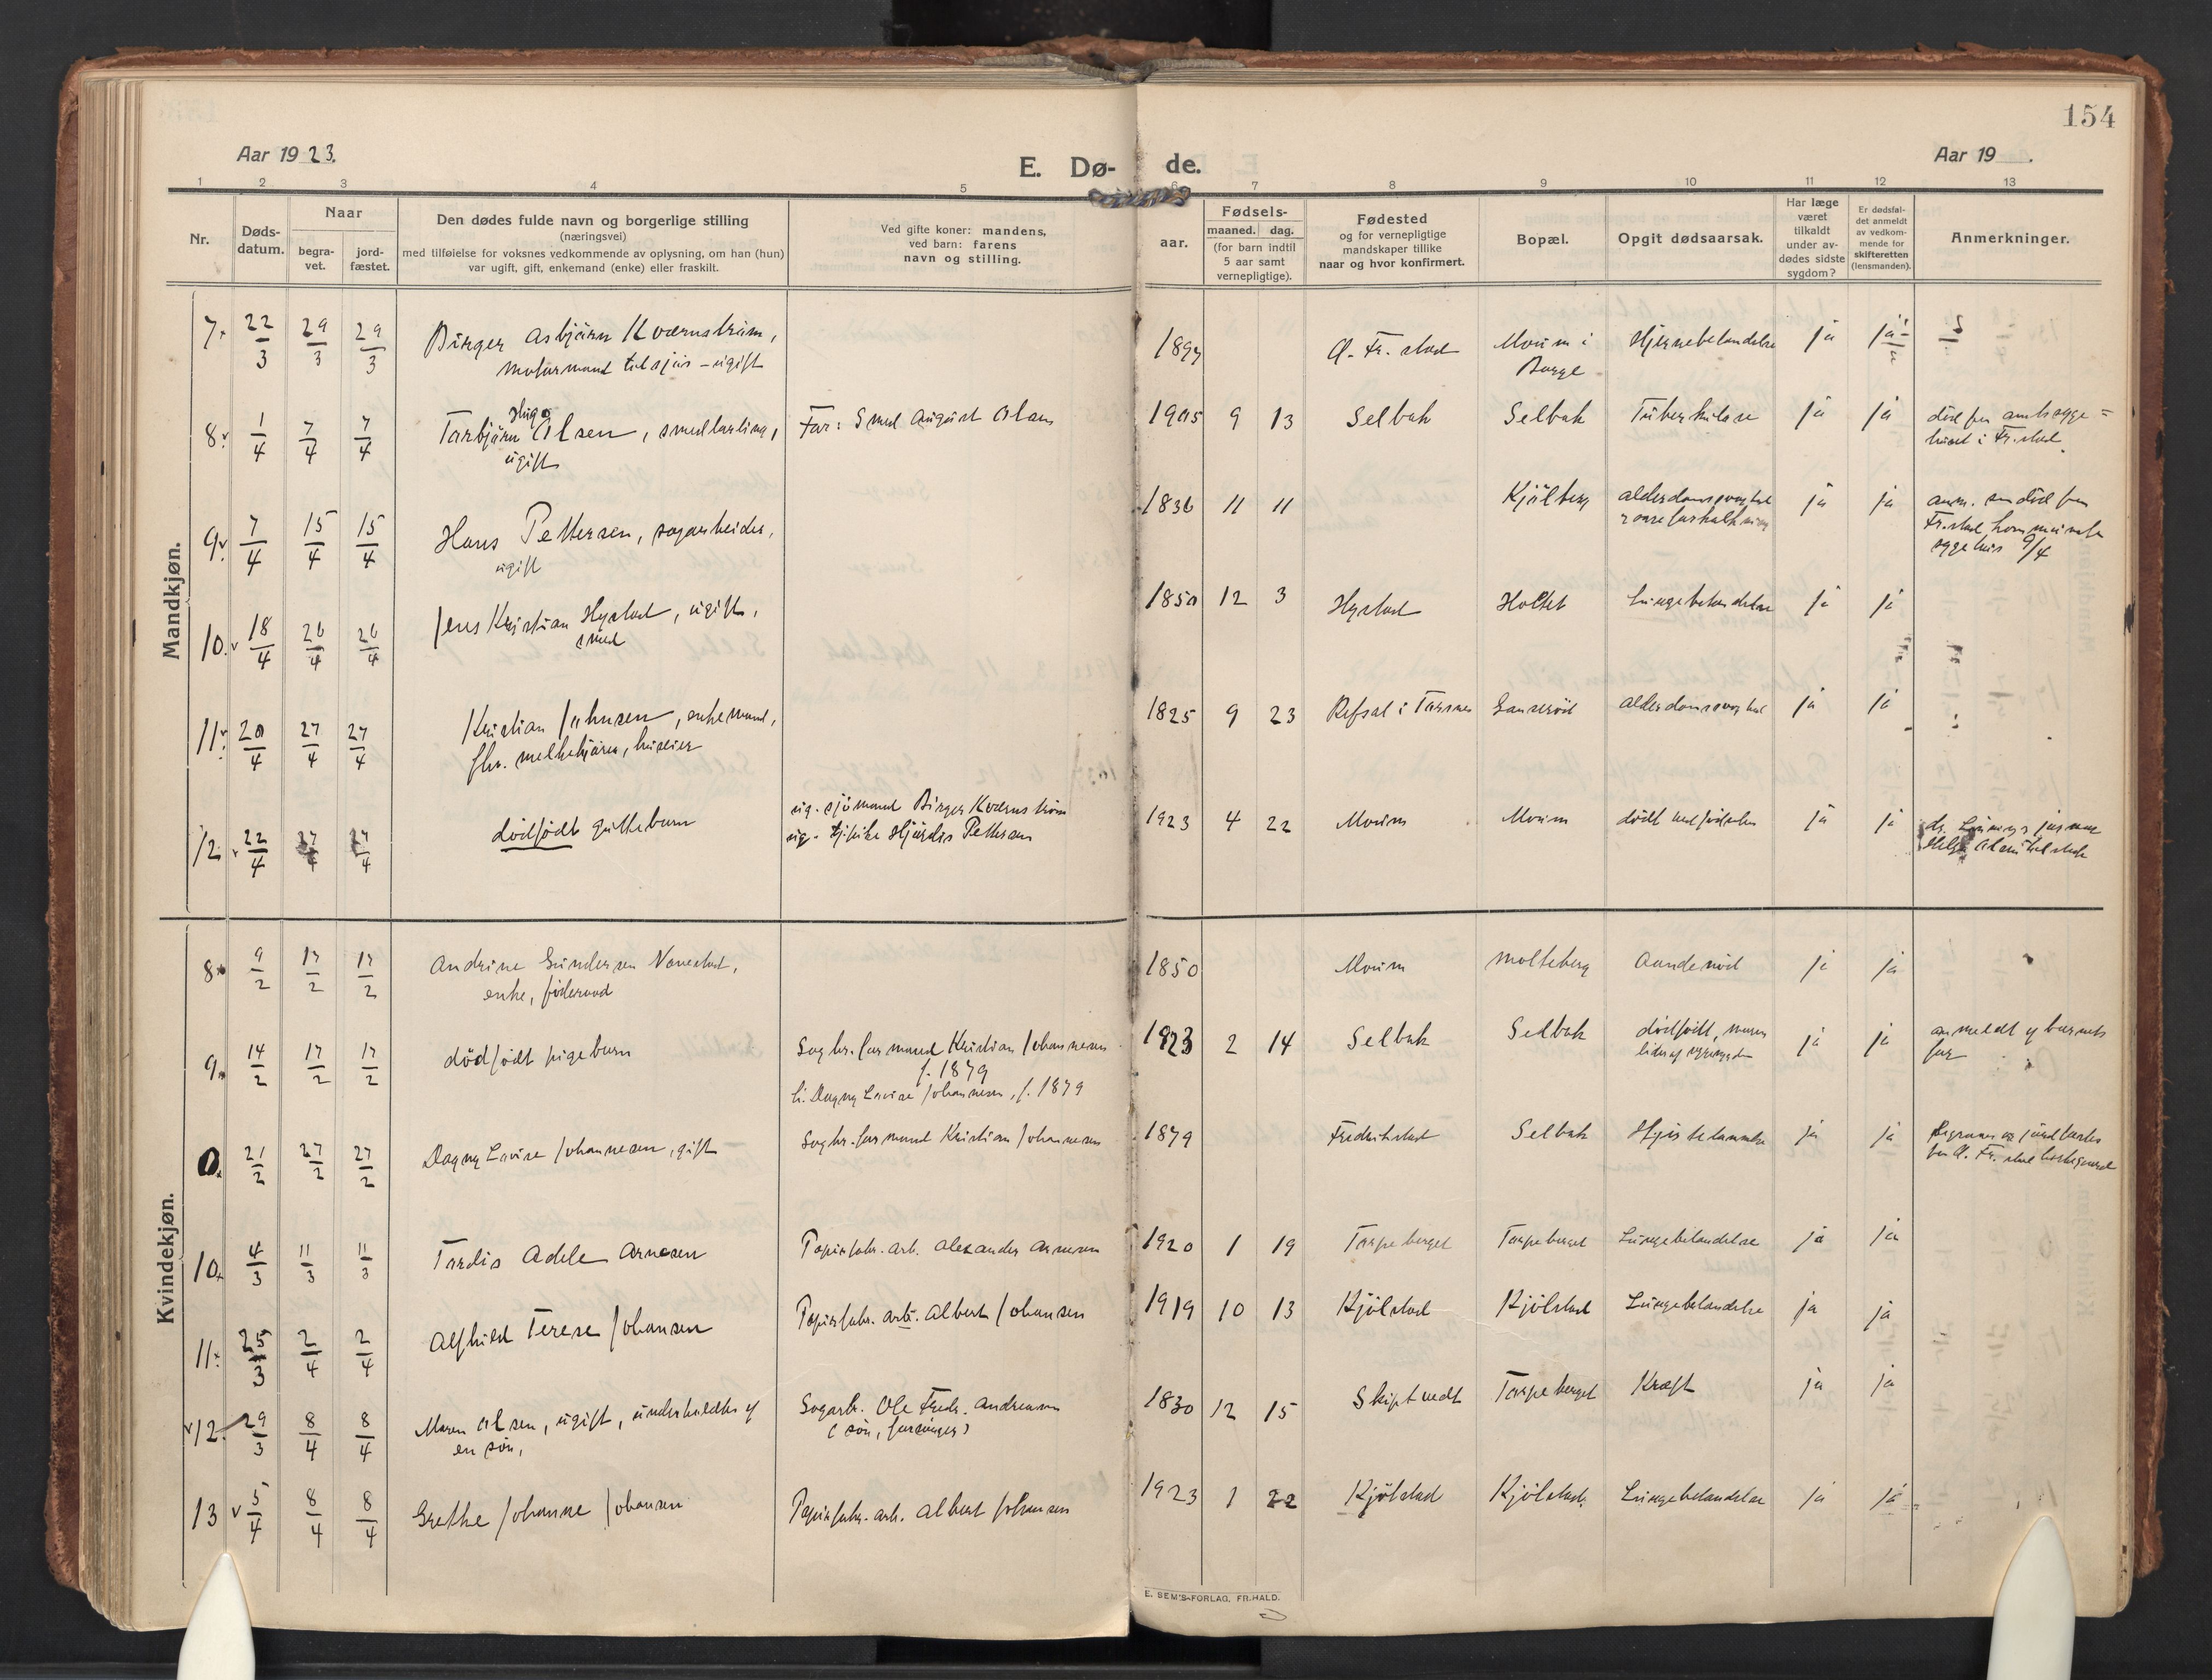 154
Aar 1923.
E. Dø-
de.
Aar 19 .
1 2 3 4 5 6 7 8 9 10 11 12 13
Nr.
Døds-
datum.
Naar
begra-
vet.
jord-
fæstet.
Den dødes fulde navn og borgerlige stilling
(næringsvei)
med tilføielse for voksnes vedkommende av oplysning, om han (hun)
var ugift, gift, enkemand (enke) eller fraskilt.
Ved gifte koner: mandens,
ved barn: farens
navn og stilling.
Fødsels-
aar.
maaned. dag.
(for barn indtil
5 aar samt
vernepligtige).
Fødested
og for vernepligtige
mandskaper tillike
naar og hvor konfirmert.
Bopæl.
Opgit dødsaarsak.
Har læge
været
tilkaldt
under av-
dødes sidste
sygdom?
Er dødsfal-
det anmeldt
av vedkom-
mende for
skifteretten
(lensmanden).
Anmerkninger.
Mandkjøn.
7. 22/3 29/3 29/3 Birger Asbjørn Kværnstrøm, 1897 Ø. Fr.stad Moum i Hjernebetændelse ja ja
motormand tilsjøs - ugift Borge
Hugo
8. 1/4 7/4 7/4 Torbjørn Olsen, smedlærling, Far: Smed August Olsen 1905 9 13 Selbak Selbak Tuberkulose ja ja død paa amtssyge=
ugift huset i Fr.stad.
9. 7/4 15/4 15/4 Hans Pettersen, sagarbeider, 1836 11 11 Kjølberg alderdomssvaghet ja ja anm. som død paa
ugift Fr.stad kommunale
sygehus 9/4
10. 18/4 26/4 26/4 Jens Kristian Hystad, ugift, 1850 12 3 Hystad Holtet Lungebetændelse ja ja
smed
11. 20/4 27/4 27/4 Kristian Johnsen, enkemand, 1825 9 23 Refsal i Torsnes Ganserød alderdomssvaghet ja ja
fhv. melkekjører, huseier
12. 22/4 27/4 27/4 dødfødt guttebarn ug. sjømand Birger Kværnstrøm 1923 4 22 Moum Moum dødt ved fødselen ja ja
ug. tj.pike Hjørdis Pettersen
Kvindekjøn.
8. 9/2 17/2 17/2 Andrine Gundersen Navestad, 1850 Moum Molteberg Aandenød ja ja
enke, føderaad
9. 14/2 17/2 17/2 dødfødt pigebarn Sagbr.formand Kristian Johannesen 1923 2 14 Selbak Selbak dødfødt, moren ja ja anmeldt af barnets
f. 1879 far
h. Dagny Lovise Johannesen, f. 1879
0. 21/2 27/2 27/2 Dagny Lovise Johannesen, gift Sagbr.formand Kristian Johannesen 1879 Fredrikstad Selbak Hjertelammelse ja ja Begraves og jordfæstes
paa Ø. Fr.stad kirkegaard
10. 4/3 11/3 11/3 Tordis Adele Arnesen Papirfabr. arb. Alexander Arnesen 1920 1 19 Torpeberget Torpeberget Lungebetændelse ja ja
11. 25/3 2/4 2/4 Alfhild Terese Johansen Papirfabr. arb. Albert Johansen 1919 10 13 Kjølstad Kjølstad Lungebetændelse ja ja
12. 29/3 8/4 8/4 Maren Olsen, ugift, underholdtes af Sagarb. Ole Fredr. Andreasen 1830 12 15 Skiptvedt Torpeberget Kræft ja ja
en søn, (søn, forsørger)
13 5/4 8/4 8/4 Grethe Johanne Johansen Papirfabr. arb. Albert Johansen 1923 1 22 Kjølstad Kjølstad Lungebetændelse ja ja
E. SEM'S FORLAG, FR.HALD.